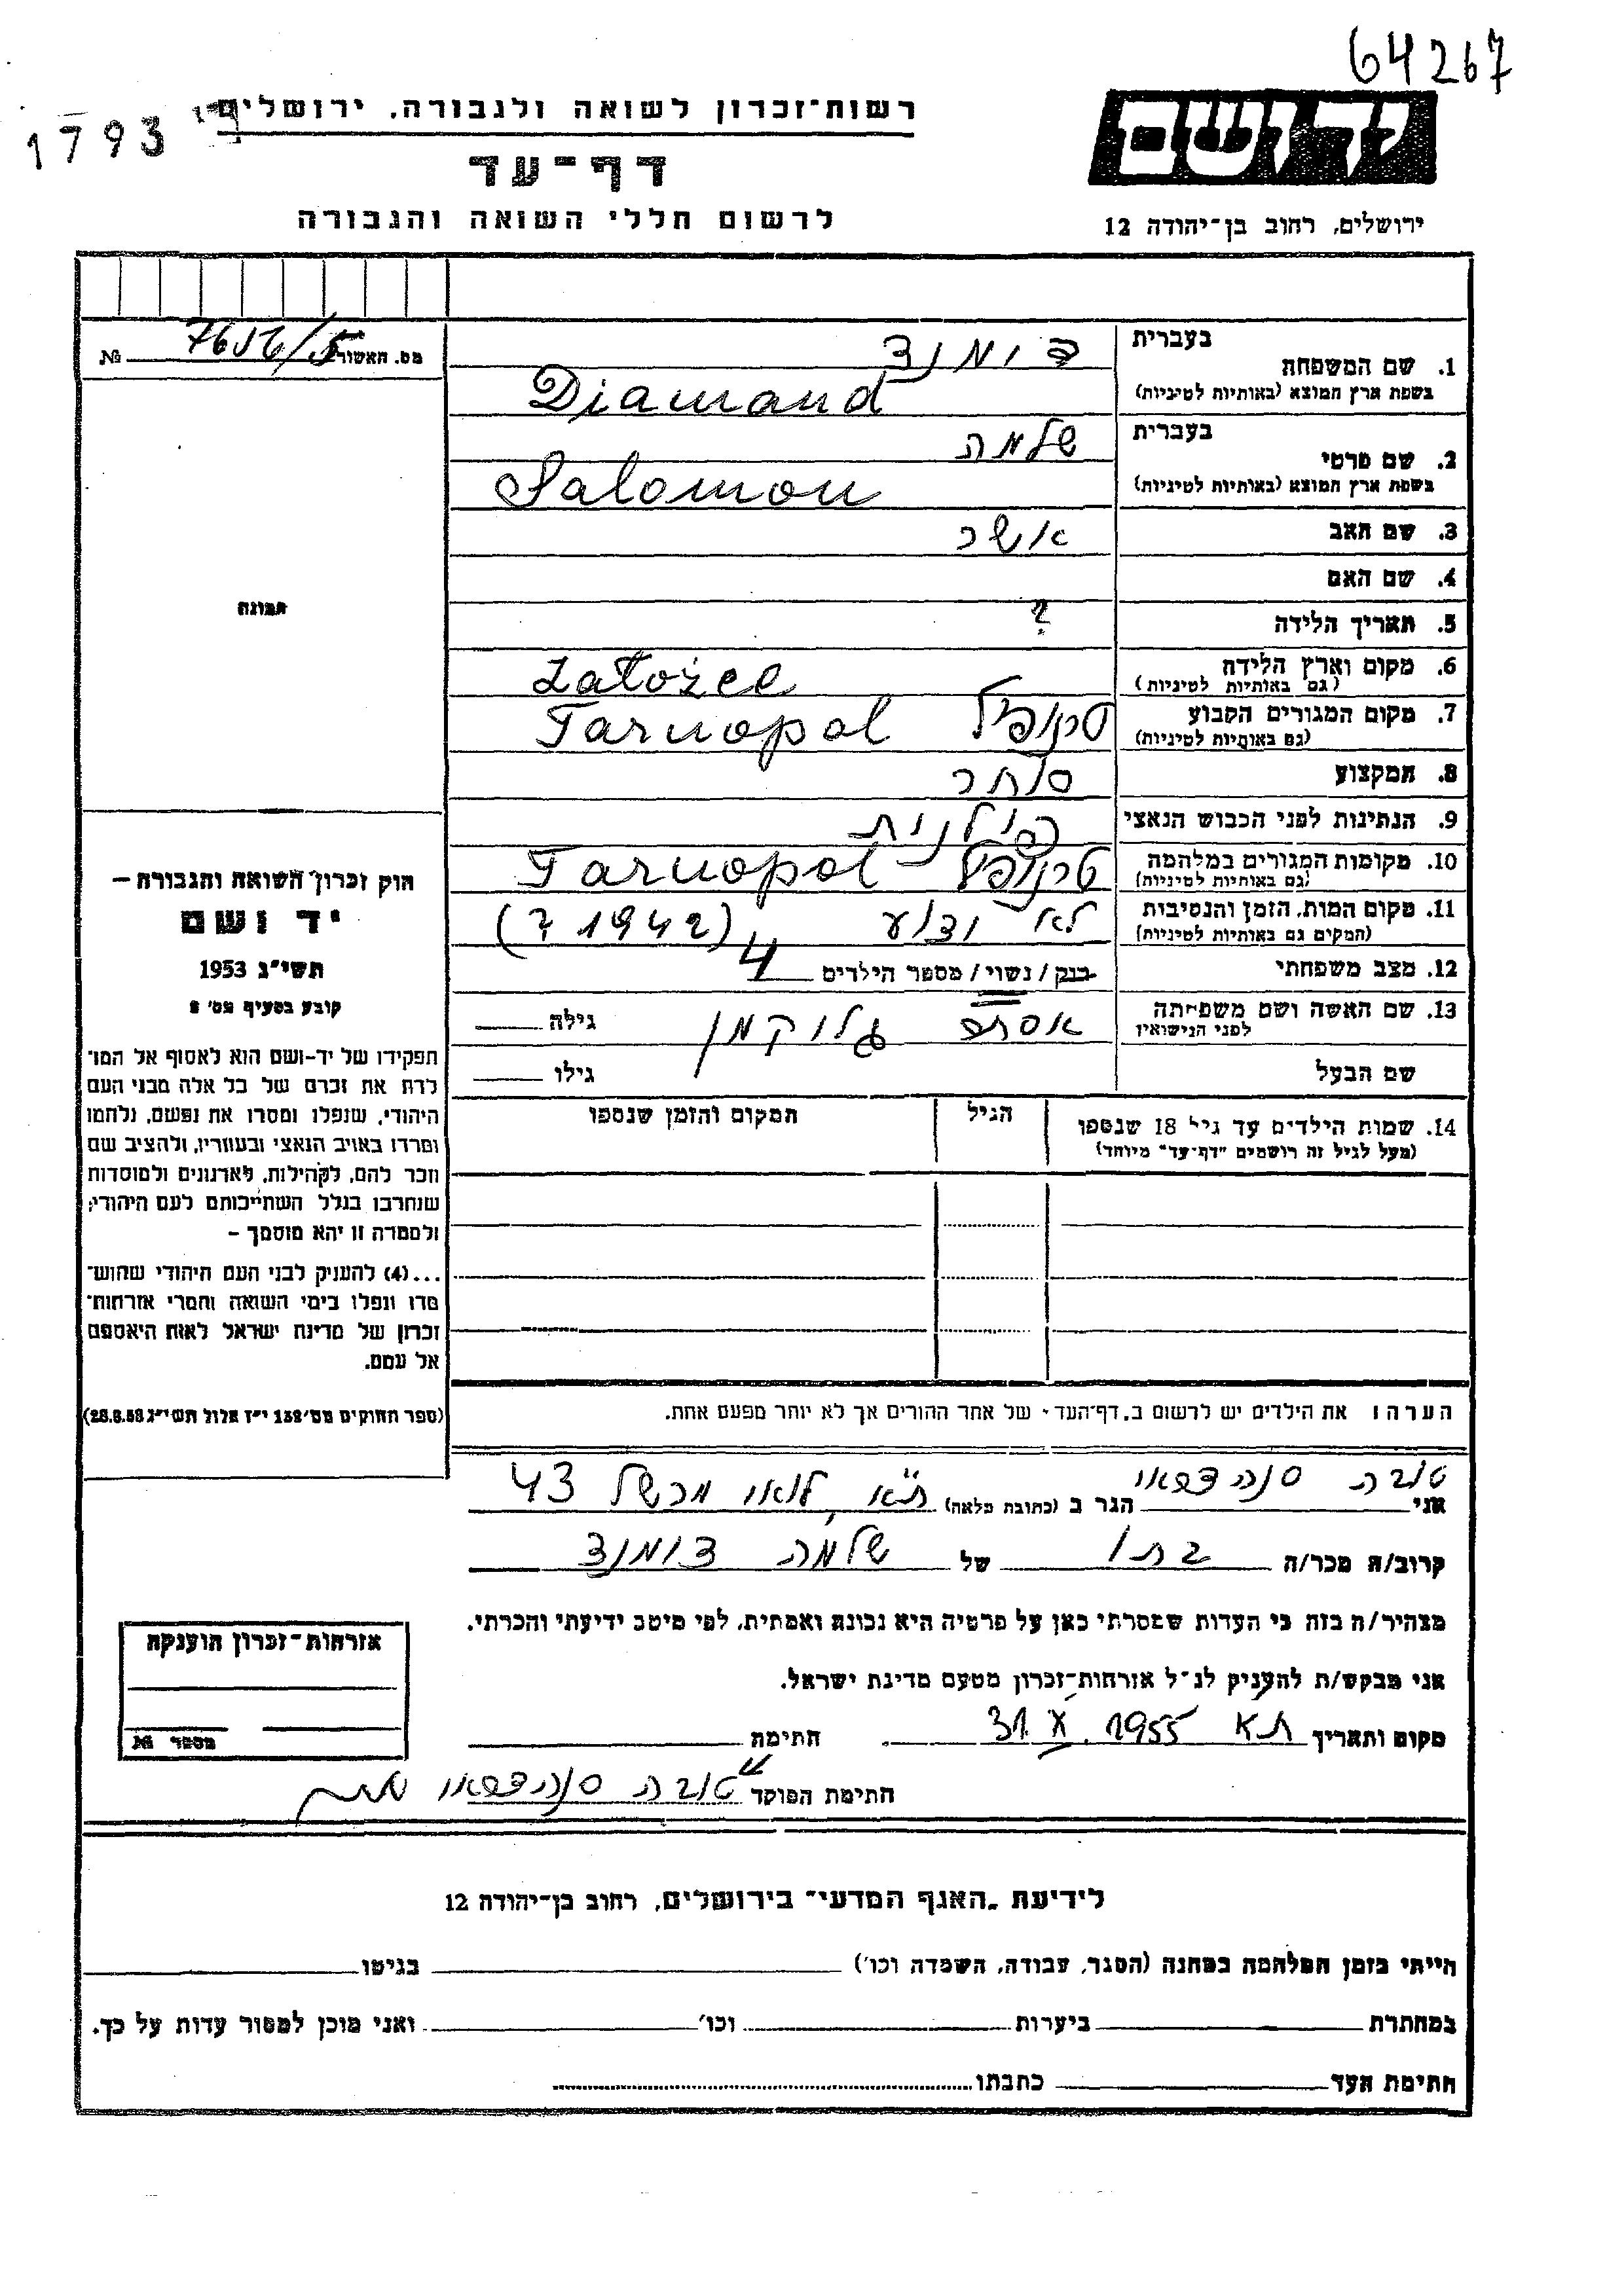 64267
1793
רשות־זכרון לשואה ולגבורה, ירושלים
דף־עד
לרשום חללי השואה והגבורה
יד ושם
ירושלים, רחוב בן־יהודה 12
מס. האשור
№
בעברית
1. שם המשפחה דימנד
בשפת ארץ המוצא (באותיות לטיניות) Diamand
בעברית
2. שם פרטי שלמה
בשפת ארץ המוצא (באותיות לטיניות) Salomon
3. שם האב אשר
4. שם האם
5. תאריך הלידה ?
6. מקום וארץ הלידה Załoźce
(גם באותיות לטיניות)
7. מקום המגורים הקבוע טרנופול Tarnopol
(גם באותיות לטיניות)
8. המקצוע סוחר
9. הנתינות לפני הכבוש הנאצי פולנית
10. מקומות המגורים במלחמה טרנופול Tarnopol
(גם באותיות לטיניות)
11. מקום המות, הזמן והנסיבות לא ידוע (1942 ?)
(המקום גם באותיות לטיניות)
12. מצב משפחתי רוק / נשוי / מספר הילדים 4
13. שם האשה ושם משפחתה אסתר גלוקמן גילה
לפני הנישואין
שם הבעל גילו
14. שמות הילדים עד גיל 18 שנספו הגיל המקום והזמן שנספו
(מעל לגיל זה רושמים "דף־עד" מיוחד)
הערה: את הילדים יש לרשום ב„דף־העד" של אחד ההורים אך לא יותר מפעם אחת.
תמונה
חוק זכרון השואה והגבורה –
יד ושם
תשי"ג 1953
קובע בסעיף מס' 2
תפקידו של יד-ושם הוא לאסוף אל המו־
לדת את זכרם של כל אלה מבני העם
היהודי, שנפלו ומסרו את נפשם, נלחמו
ומרדו באויב הנאצי ובעוזריו, ולהציב שם
וזכר להם, לקהילות, לארגונים ולמוסדות
שנחרבו בגלל השתייכותם לעם היהודי;
ולמטרה זו יהא מוסמך –
...(4) להעניק לבני העם היהודי שהוש־
מדו ונפלו בימי השואה והמרי אזרחות־
זכרון של מדינת ישראל לאות היאספם
אל עמם.
(ספר החוקים מס' 132 י"ז אלול תשי"ג 28.8.53)
אני טובה הגר ב (כתובת מלאה) ת"א, לואי מרשל 43
קרוב/ה מכר/ה בתו של שלמה דימנד
מצהיר/ה בזה כי העדות שמסרתי כאן על פרטיה היא נכונה ואמתית, לפי מיטב ידיעתי והכרתי.
אני מבקש/ת להעניק לנ"ל אזרחות־זכרון מטעם מדינת ישראל.
מקום ותאריך ת"א 31.X.1955 חתימת
חתימת הפוקד טובה
אזרחות־זכרון הוענקה
מספר №
לידיעת „האגף המדעי" בירושלים, רחוב בן־יהודה 12
הייתי בזמן המלחמה במחנה (הסגר, עבודה, השמדה וכו') בגיטו
במחתרת ביערות וכו' ואני מוכן למסור עדות על כך.
חתימת העד כתבתו